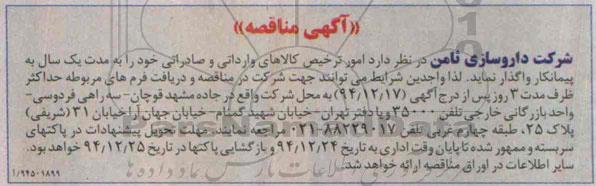 «آگهی مناقصه»
شرکت داروسازی ثامن در نظر دارد امور ترخیص کالاهای وارداتی و صادراتی خود را به مدت یک سال به
پیمانکار واگذار نماید. لذا واجدین شرایط می توانند جهت شرکت در مناقصه و دریافت فرم های مربوطه حداکثر
ظرف مدت ۳ روز پس از درج آگهی (۹۴/۱۲/۱۷) به محل شرکت واقع در جاده مشهد قوچان- سه راهی فردوسی-
واحد بازرگانی خارجی تلفن ۳۵۰۰۰ و یا دفتر تهران- خیابان شهید گمنام- خیابان جهان آرا خیابان ۳۱ (شریفی)
پلاک ۲۵، طبقه چهارم غربی تلفن ۸۸۲۲۹۰۱۷-۰۲۱ مراجعه نمایند. مهلت تحویل پیشنهادات در پاکتهای
سربسته و ممهور شده تا پایان وقت اداری به تاریخ ۹۴/۱۲/۲۴ و بازگشایی پاکتها در تاریخ ۹۴/۱۲/۲۵ خواهد بود.
سایر اطلاعات در اوراق مناقصه ارائه خواهد شد.
۱/۹۴۵۰۱۸۹۹